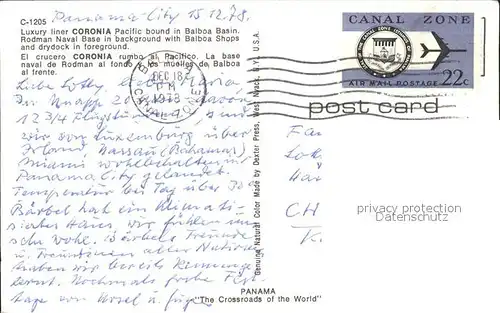 Panama-City 15.12.78.
C-1205
Luxury liner CORONIA Pacific bound in Balboa Basin.
Rodman Naval Base in background with Balboa Shops
and drydock in foreground.
El crucero CORONIA rumbo al Pacifico. La base
naval de Rodman al fondo y los muelles de Balboa
al frente.
CANAL ZONE
AIR MAIL POSTAGE 22c
DEC 18
PM
1978
post card
Liebe Lotty, Maria
In knapp 20
12 3/4 Flugstunden, sind
wir von Luxemburg über
Irland Nassau (Bahamas)
Miami wohlbehalten in
Panama City gelandet.
Temperatur bei Tag über 30
Bärbel hat ein klimati-
siertes Haus wir fühlen uns
sehr wohl. Bärbels Freunde
u. Freundinnen aller Nationen
haben wir bereits kennenge-
lernt. Nochmals frohe Fest-
tage von Ursel u.
Genuine Natural Color Made by Dexter Press, West Nyack, N.Y. U.S.A.
Lot
CH
privacy protection
Datenschutz
PANAMA
"The Crossroads of the World"